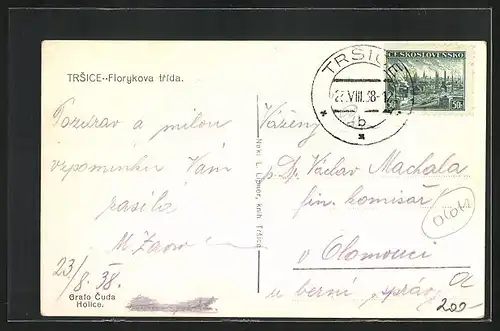 TRŠICE--Florykova třída.
Pozdrav a milou
vzpomínku Vám
zasílá
23/8. 38.
Grafo Čuda
Holice.
Nakl. L. Lipner, knih. Tršice
TRŠICE
23.VIII.38-12
b
ČESKOSLOVENSKO
50h
Vážený
p. Dr. Václav Machala
fin. komisař
v Olomouci
u berní správy
200-